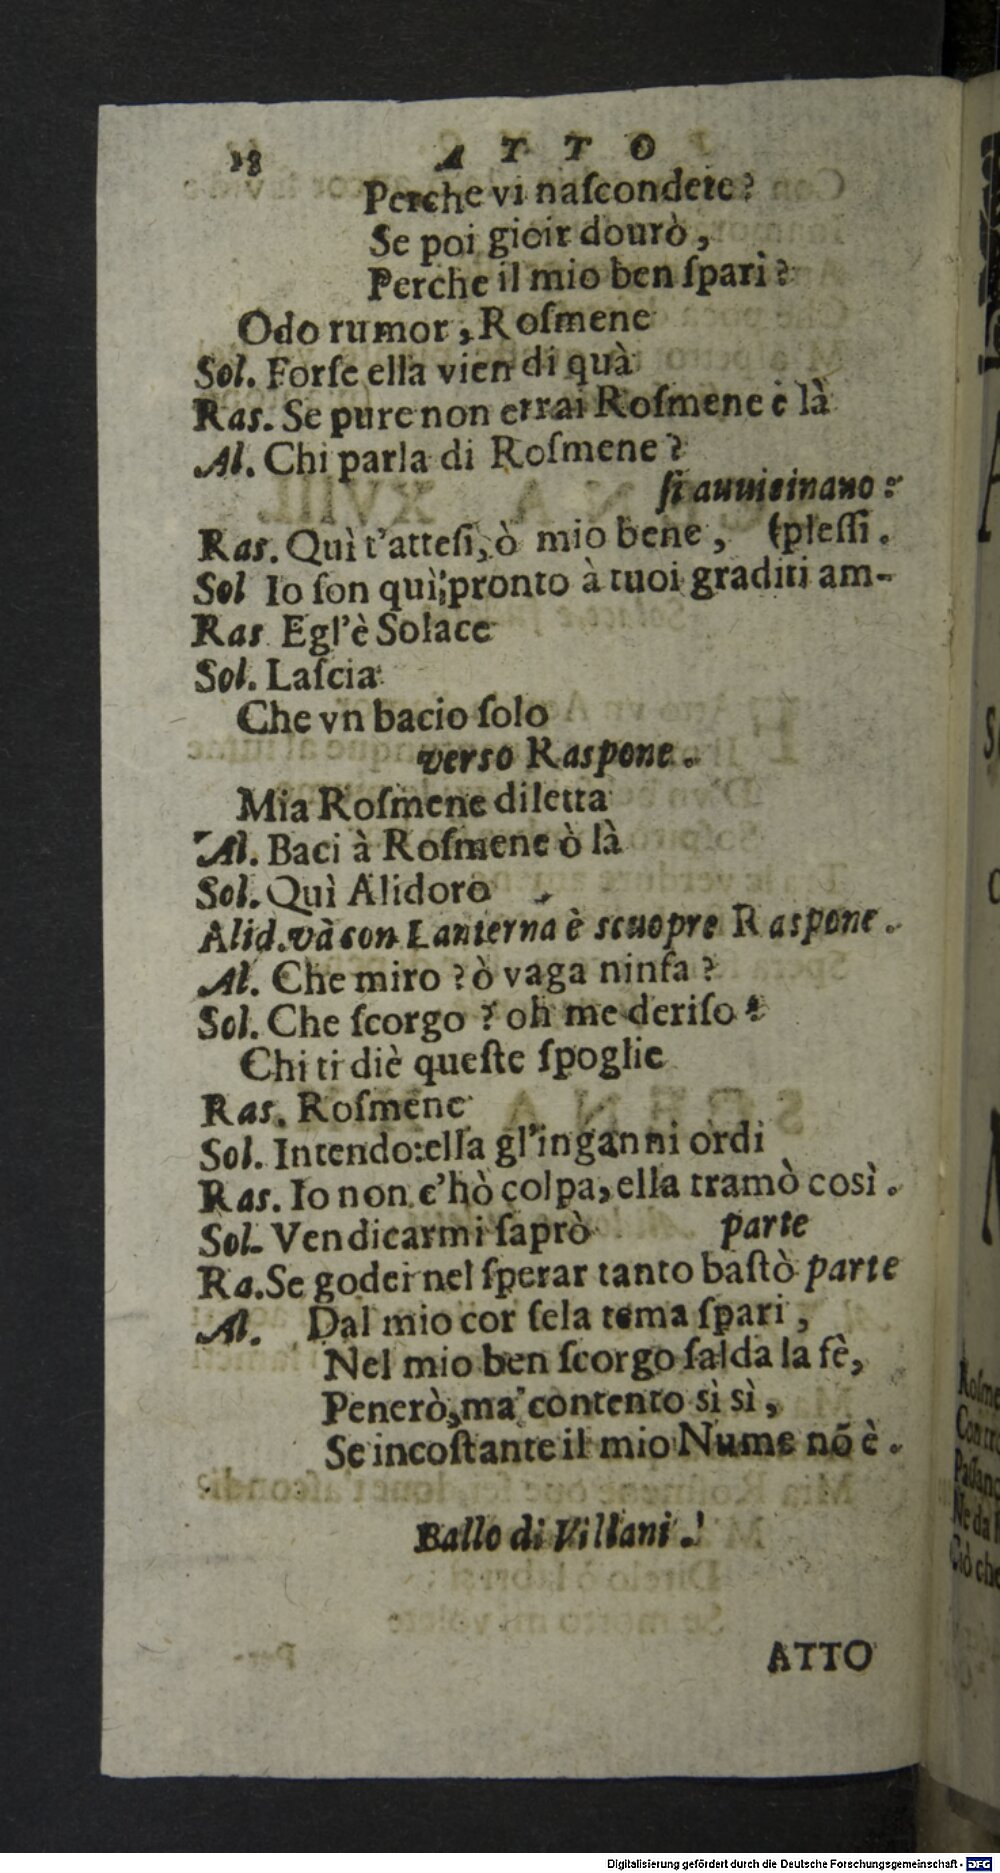 18 ATTO
Perche vi naſcondete?
Se poi gioir dourò,
Perche il mio ben ſparì?
Odo rumor, Roſmene
Sol. Forſe ella vien di quà
Ras. Se pure non errai Roſmene è là
Al. Chi parla di Roſmene?
ſi auuicinano:
Ras. Quì t'atteſi, ò mio bene, (pleſſi.
Sol Io ſon quì; pronto à tuoi graditi am-
Ras Egl'è Solace
Sol. Laſcia
Che vn bacio ſolo
verso Raspone.
Mia Roſmene diletta
Al. Baci à Roſmene ò là
Sol. Quì Alidoro
Alid. và con Lanterna è scuopre Raspone.
Al. Che miro? ò vaga ninfa?
Sol. Che ſcorgo? oh me deriſo!
Chi ti diè queſte ſpoglie
Ras. Roſmene
Sol. Intendo: ella gl'inganni ordì
Ras. Io non c'hò colpa, ella tramò così.
Sol. Vendicarmi ſaprò parte
Ra. Se godei nel ſperar tanto baſtò parte
Al. Dal mio cor ſela tema ſpari,
Nel mio ben ſcorgo ſalda la fè,
Penerò, ma contento sì sì,
Se incoſtante il mio Nume nõ è.
Ballo di Villani.
ATTO
Digitalisierung gefördert durch die Deutsche Forschungsgemeinschaft - DFG